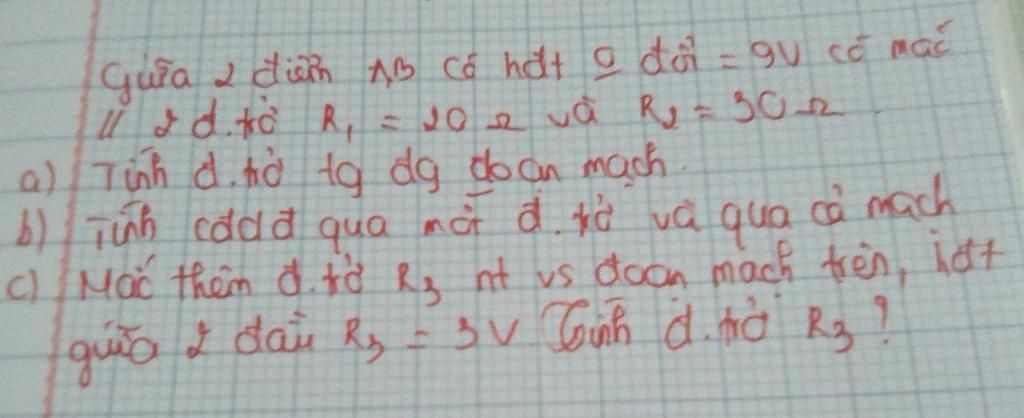 Giữa 2 điểm AB có hđt o đổi = 9V có mắc
// 2 đ.trở R₁ = 20 Ω và R₂ = 30 Ω
a) Tính đ.trở tg dg đoạn mạch.
b) Tính cđdđ qua mỗi đ.trở và qua cả mạch
c) Mắc thêm đ.trở R₃ nt vs đoạn mạch trên, hđt
giữa 2 đầu R₃ = 3V. Tính đ.trở R₃?